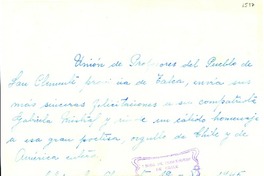 Unión de Profesores del Pueblo de
San Clemente provincia de Talca, envía sus
más sinceras felicitaciones a su compatriota
Gabriela Mistral y rinde un cálido homenaje
a esa gran poetisa, orgullo de Chile y de
América entera.
1945